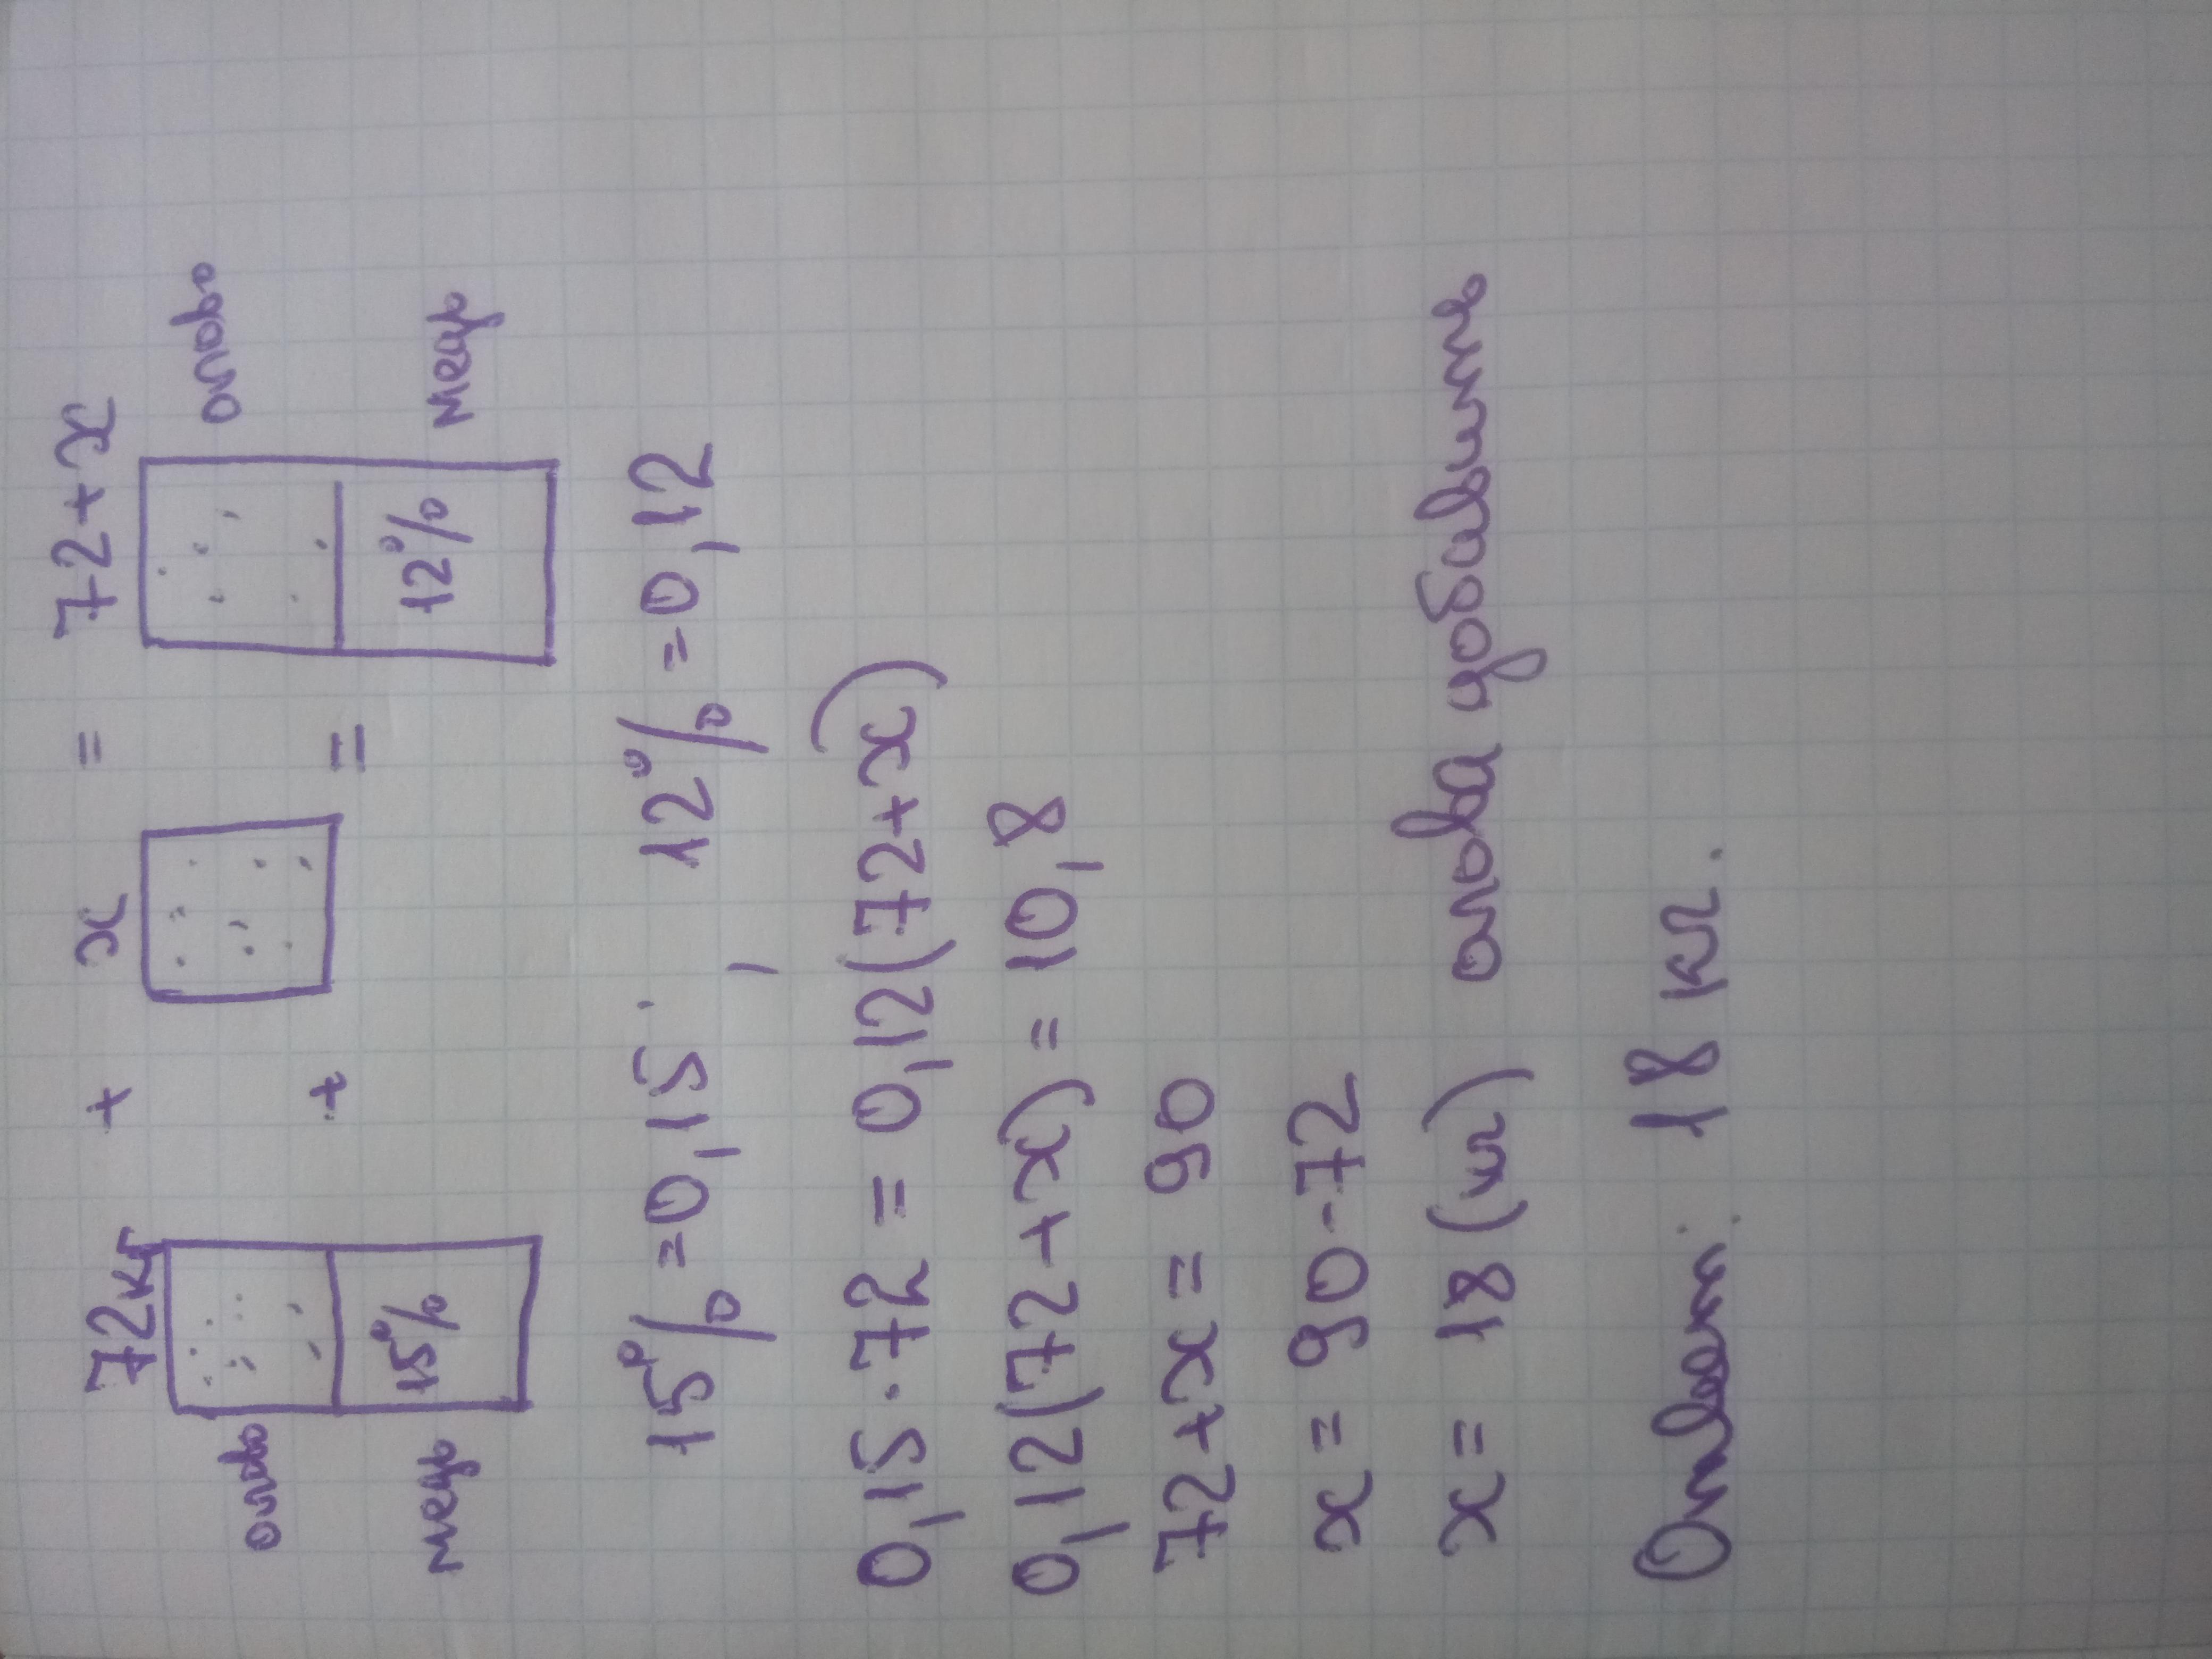 72кг + x = 72+x
олово + = олово
медь 15% 12% медь
15%=0,15. 12%=0,12
0,15·72 = 0,12(72+x)
0,12(72+x) = 10,8
72+x = 90
x = 90-72
x = 18 (кг) олова
Ответ: 18 кг.